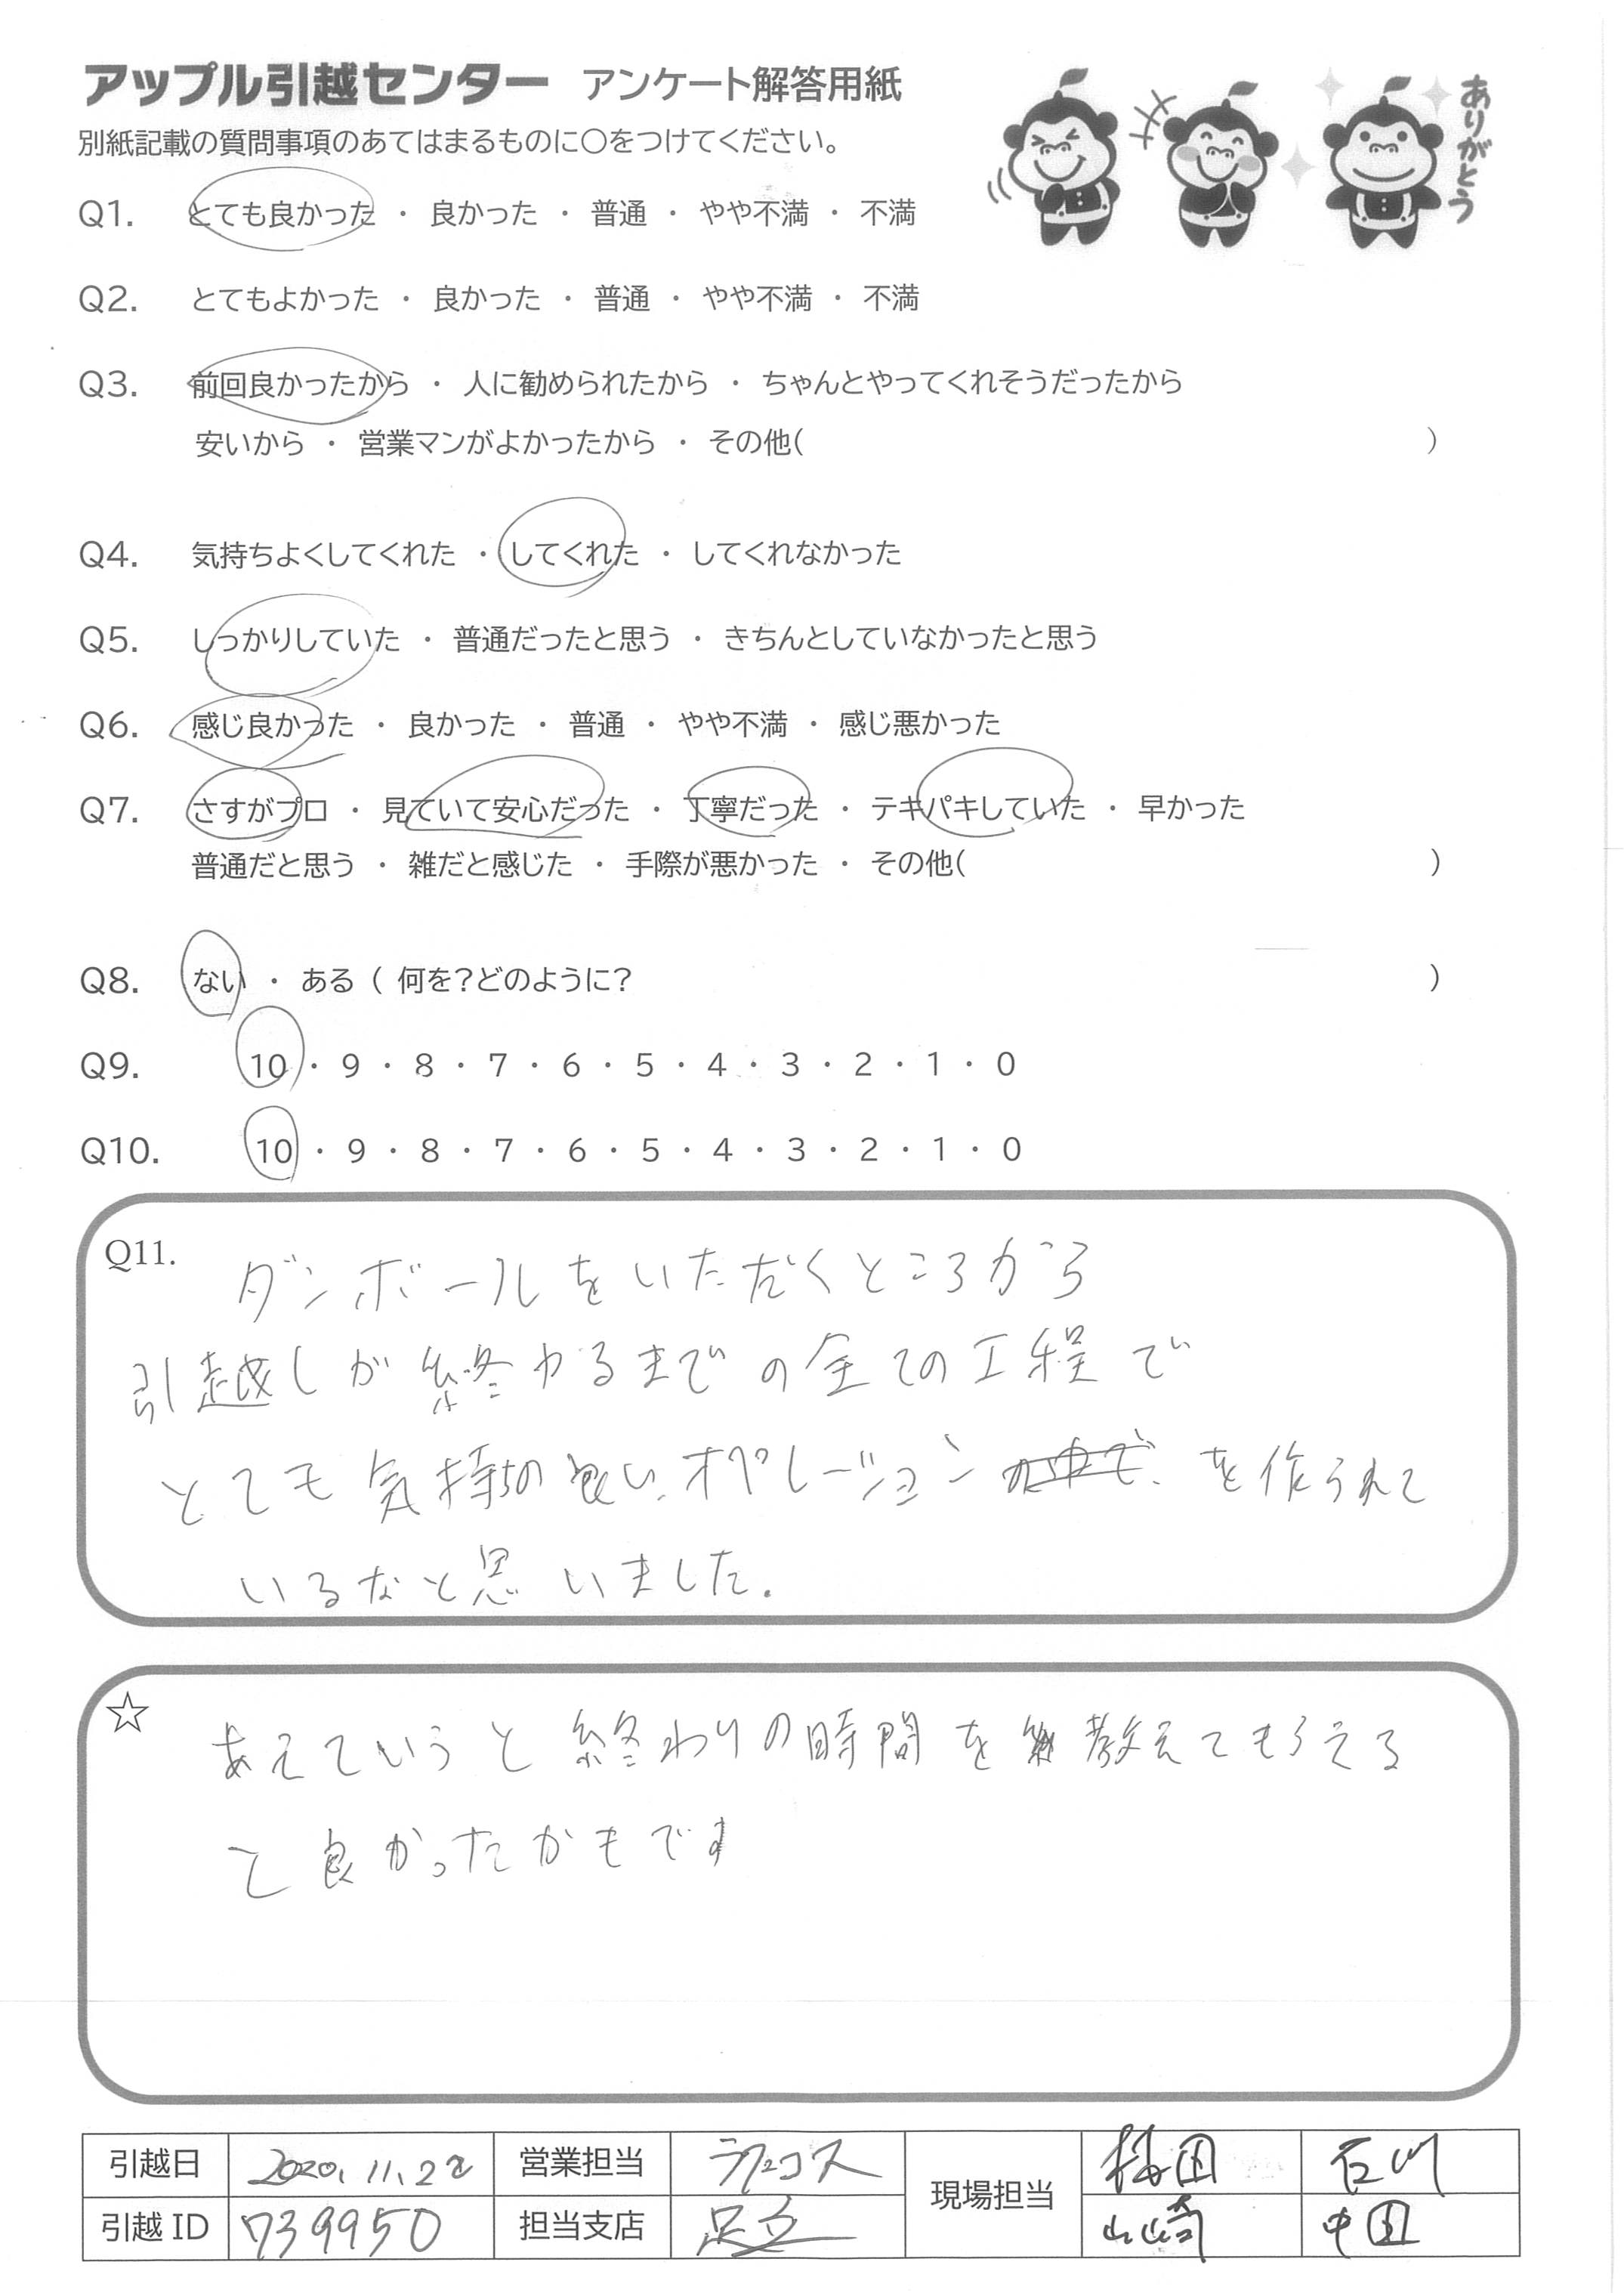 アップル引越センター アンケート解答用紙
ありがとう
別紙記載の質問事項のあてはまるものに○をつけてください。
Q1. とても良かった ・ 良かった ・ 普通 ・ やや不満 ・ 不満
Q2. とてもよかった ・ 良かった ・ 普通 ・ やや不満 ・ 不満
Q3. 前回良かったから ・ 人に勧められたから ・ ちゃんとやってくれそうだったから
安いから ・ 営業マンがよかったから ・ その他( )
Q4. 気持ちよくしてくれた ・ してくれた ・ してくれなかった
Q5. しっかりしていた ・ 普通だったと思う ・ きちんとしていなかったと思う
Q6. 感じ良かった ・ 良かった ・ 普通 ・ やや不満 ・ 感じ悪かった
Q7. さすがプロ ・ 見ていて安心だった ・ 丁寧だった ・ テキパキしていた ・ 早かった
普通だと思う ・ 雑だと感じた ・ 手際が悪かった ・ その他( )
Q8. ない ・ ある ( 何を?どのように? )
Q9. 10 ・ 9 ・ 8 ・ 7 ・ 6 ・ 5 ・ 4 ・ 3 ・ 2 ・ 1 ・ 0
Q10. 10 ・ 9 ・ 8 ・ 7 ・ 6 ・ 5 ・ 4 ・ 3 ・ 2 ・ 1 ・ 0
Q11. ダンボールをいただくところから
引越しが終わるまでの全ての工程で
とても気持ちの良い、オペレーションを作られて
いるなと思いました。
☆ あえていうと終わりの時間を教えてもらえる
と良かったかもです
引越日 2020.11.22 営業担当 現場担当 梅田 石川
引越ID 739950 担当支店 足立 山崎 中田